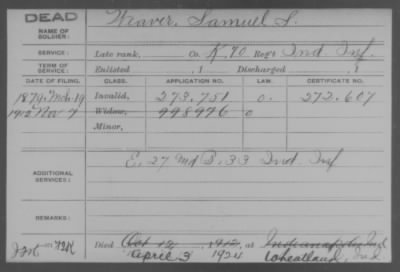 DEAD
Weaver, Samuel S.
NAME OF SOLDIER:
SERVICE: Late rank, Co. K. 70 Reg't Ind. Inf.
TERM OF SERVICE: Enlisted , 1 Discharged , 1
DATE OF FILING. CLASS. APPLICATION NO. LAW. CERTIFICATE NO.
1879. Mch. 19 Invalid, 273.751 O. 272.607
1912 Nov 7 Widow, 998976 O
Minor,
ADDITIONAL SERVICES: E. 27 & B. 33 Ind. Inf
REMARKS:
Died Oct 12, 1912, at Indianapolis Ind
April 3 1924 Wheatland, Ind.